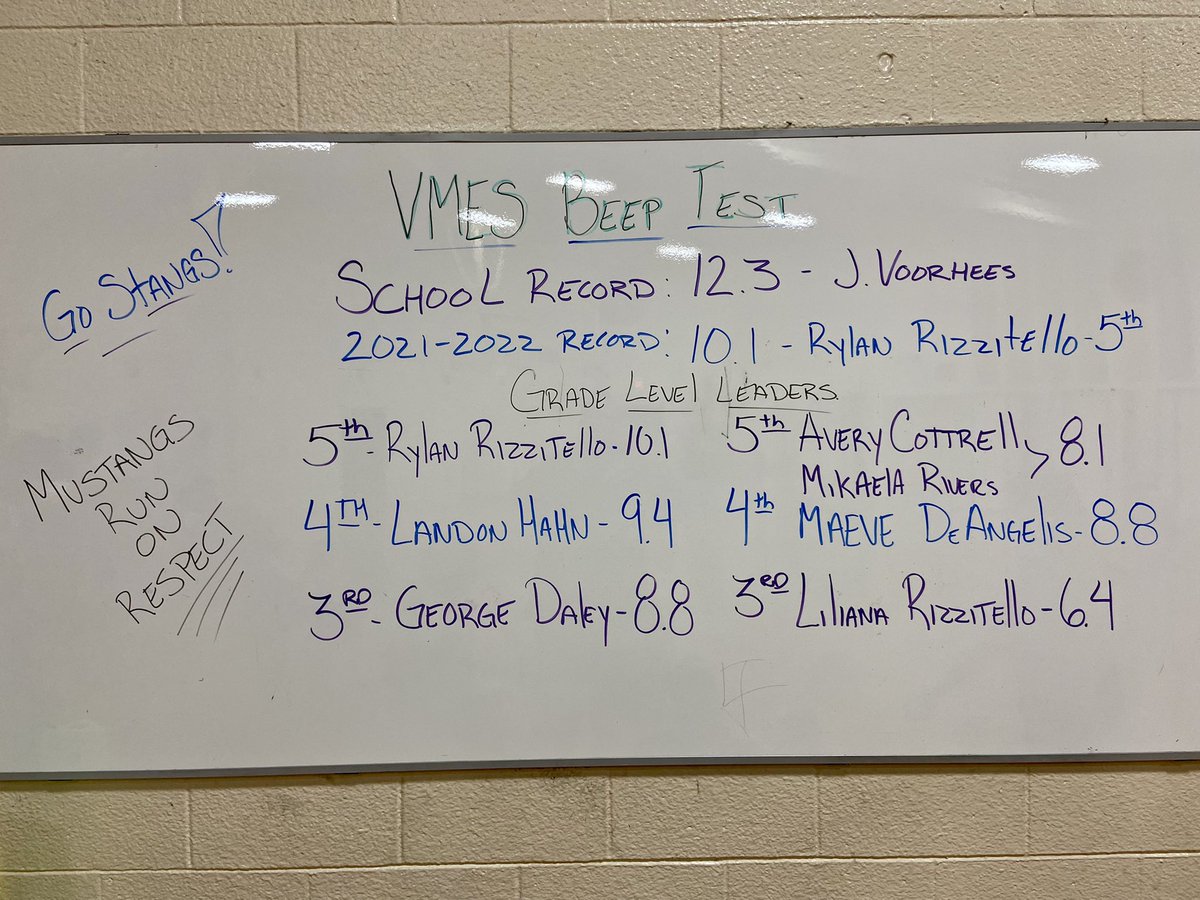 VMES BEEP TEST
GO STANGS!!
SCHOOL RECORD: 12.3 - J. VOORHEES
2021-2022 RECORD: 10.1 - RYLAN RIZZITELLO - 5th
GRADE LEVEL LEADERS
5th - RYLAN RIZZITELLO - 10.1
4TH - LANDON HAHN - 9.4
3RD - GEORGE DALEY - 8.8
5th AVERY COTTRELL > 8.1
MIKAELA RIVERS
4th MAEVE DEANGELIS - 8.8
3RD LILIANA RIZZITELLO - 6.4
MUSTANGS
RUN
ON
RESPECT